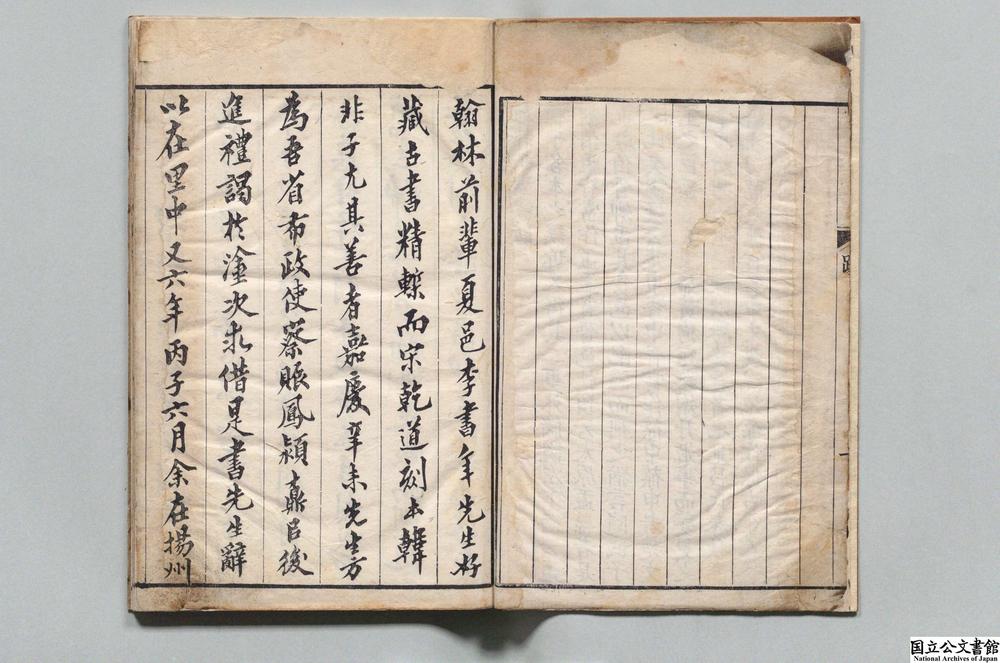 翰林前輩夏邑李書年先生好
藏古書精槧而宋乾道刻本韓
非子尤其善者嘉慶辛未先生方
為吾省布政使察賑鳳潁鼒以後
進禮謁於塗次求借是書先生辭
以在里中又六年丙子六月余在揚州
國立公文書館
National Archives of Japan